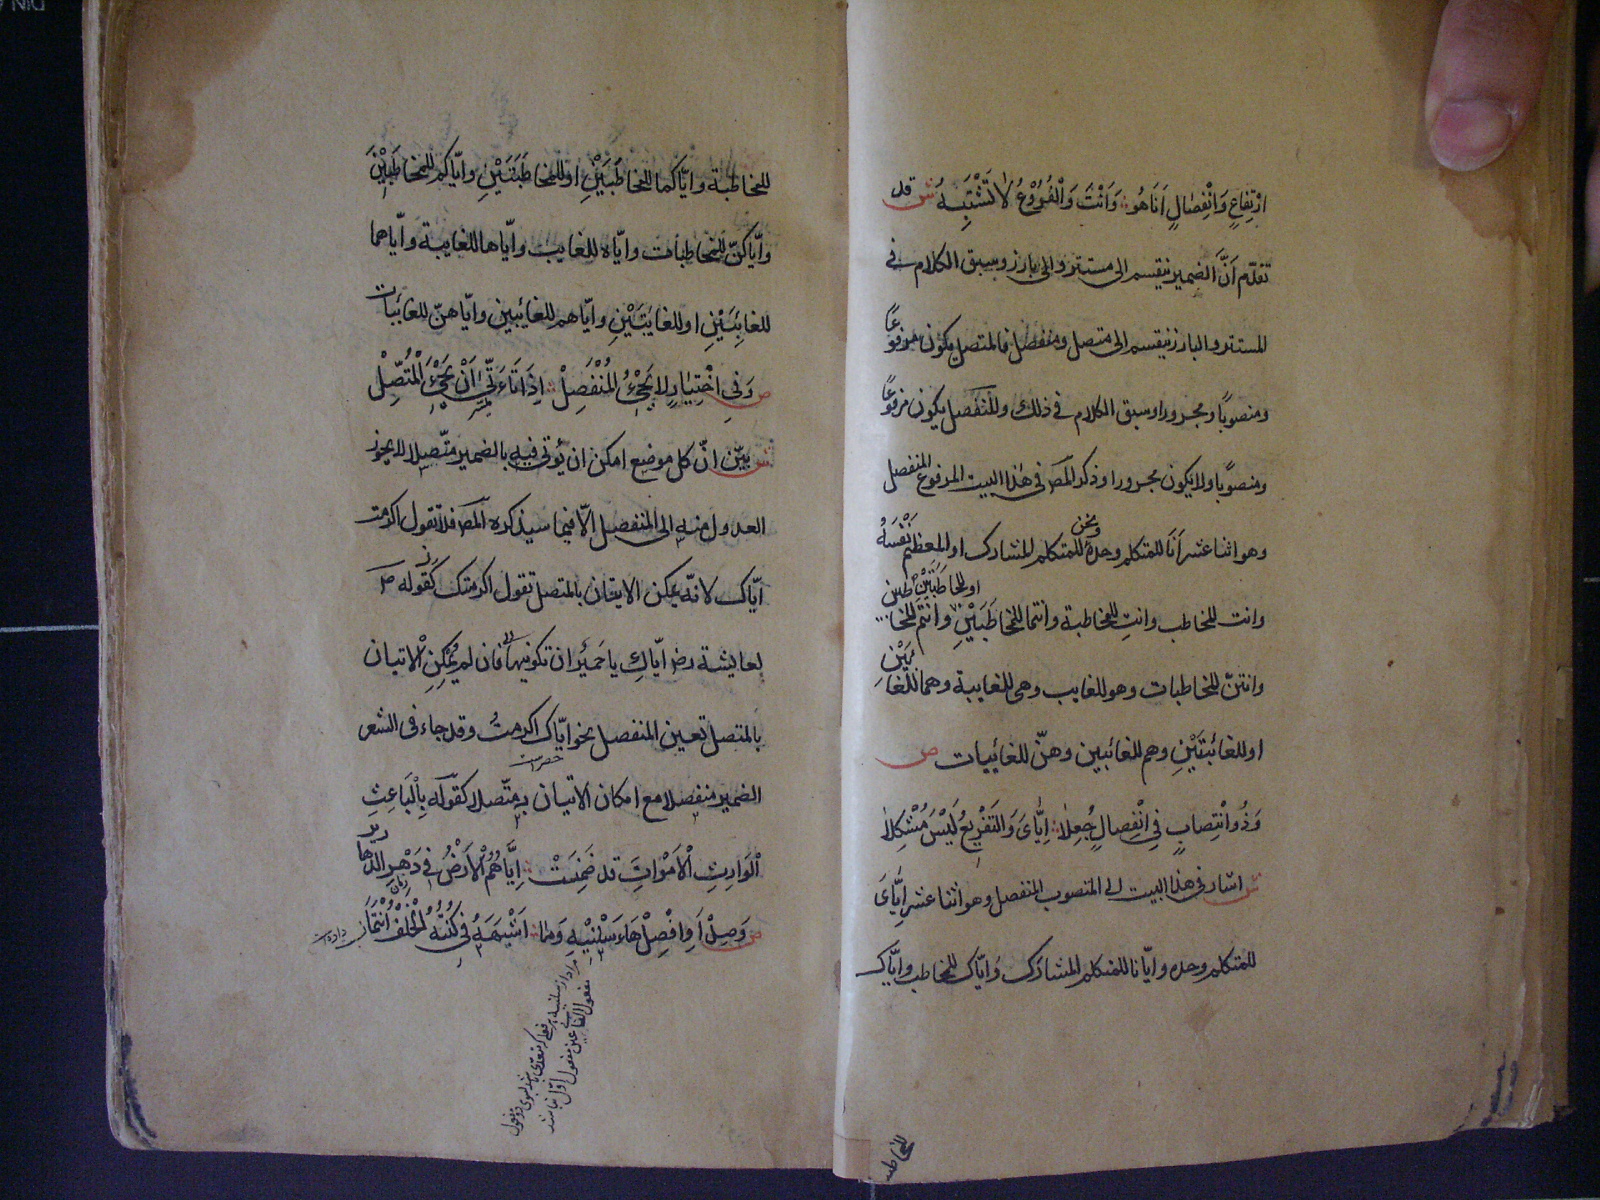 ارْتِفَاعٍ وَانْفِصَالٍ اَنَا هُو وَاَنْتَ وَالْفُرُوْعُ لَا تَشْتَبِهُ ش قد
تقدّم اَنَّ الضمير ينقسم الى مستتر والى بارز وسبق الكلام فى
المستتر والبارز ينقسم الى متصل ومنفصل فالمتصل يكون مرفوعًا
ومنصوبًا ومجرورا وسبق الكلام فى ذلك والمنفصل يكون مرفوعًا
ومنصوبًا ولا يكون مجرورا وذكر المص فى هذا البيت المرفوع المنفصل
وهو اثنا عشر اَنَا للمتكلم وحدهٗ ونحن للمتكلم المشارك او المعظم نَفْسَهُ
وانت للمخاطب وانتِ للمخاطبة وانتما للمخاطَبَيْنِ او للمخاطبَتَيْنِ وانتم للمخاطبين
وانتنّ للمخاطبات وهو للغايب وهى للغايبة وهما للغائِبَيْنِ
او للغائبتَيْنِ وهم للغائبين وهنّ للغائيبات ص
وَذُو انْتِصَابٍ فِى انْفِصَالٍ جُعِلَا اِيَّاىَ وَالتَفْرِيْعُ لَيْسَ مُشْكِلَا
ش اشار فى هذا البيت الى المنصوب المنفصل وهو اثنا عشر اِيَّاىَ
للمتكلم وحده وايّانا للمتكلم المشارَك وَايّاكَ للمخاطب وايّاكِ
للمخاطبة
للمخاطبة وايّاكما للمخاطَبَيْنِ او للمخاطبَتَيْنِ وايّاكم للمخاطَبِيْنَ
وايّاكنّ للمخاطبات وايّاه للغايب وايّاها للغايبة وايّاهما
للغائِبَيْنِ او للغايَبَتَيْنِ وايّاهم للغائبين وايّاهنّ للغائبات
ص وَفِى اخْتِيَارٍ لَا يَجِيْءُ المُنْفَصِلْ اِذَا تَاَتَّى اَنْ يَجِيْءَ الْمُتَّصِلْ
ش بيّن انّ كل موضع امكن ان يُؤتى فيه بالضمير متّصلا لا يجوز
العدول منه الى المنفصل الّا فيما سيذكره المص فلا تقول اكرمت
ايّاك لانّه يمكن الاتيان بالمتصل تقول اكرمتك كقوله ص
لعايشة رض ايّاكِ يا حَمَيْرا ان تكونيها فان لم يُمْكِنِ الْاتيان
بالمتصل تعين المنفصل نحو ايّاك اكرمتُ وقد جاء فى الشعر
الضمير منفصلا مع امكان الاتيان به متّصلا كقوله بِالْبَاعِثِ
الْوَارِثِ الْاَمْوَاتَِ قد ضَمِنَتْ اِيَّاهُمُ الْاَرْضُ فى دَهْرِ الدّهارير
ص وَصِلْ اَوِ افْصِلْ هَاءَ سَلْنِيْهِ وَمَا اَشْبَهَهُ فِى كُنْتُهُ الْخُلْفُ انْتَمَا